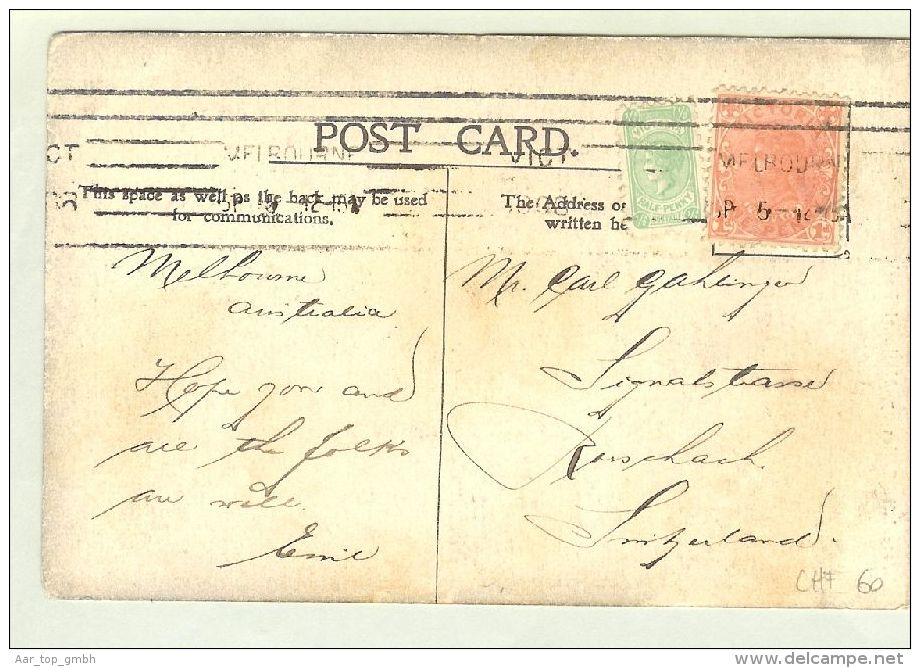 POST CARD.
MELBOURNE
VICT
MELBOURN
SP 5
This space as well as the back may be used
for communications.
The Address o
written he
HALF-PENNY
Melbourne
Australia
Hope you and
all the folks
are well.
Emil
Mr. Carl Gahlinger
Signalstrasse
Rorschach
Switzerland.
CHF 60
Aar_top_gmbh
www.delcampe.net